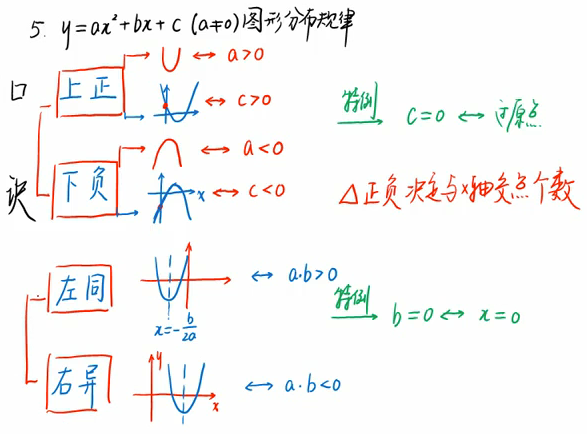 5. y=ax²+bx+c (a≠0)图形分布规律
口诀
上正
a>0
c>0
特例 c=0 ↔ 过原点
下负
a<0
x
c<0
△正负决定与x轴交点个数
左同
a·b>0
x=-b/2a
特例 b=0 ↔ x=0
右异
y
x
a·b<0